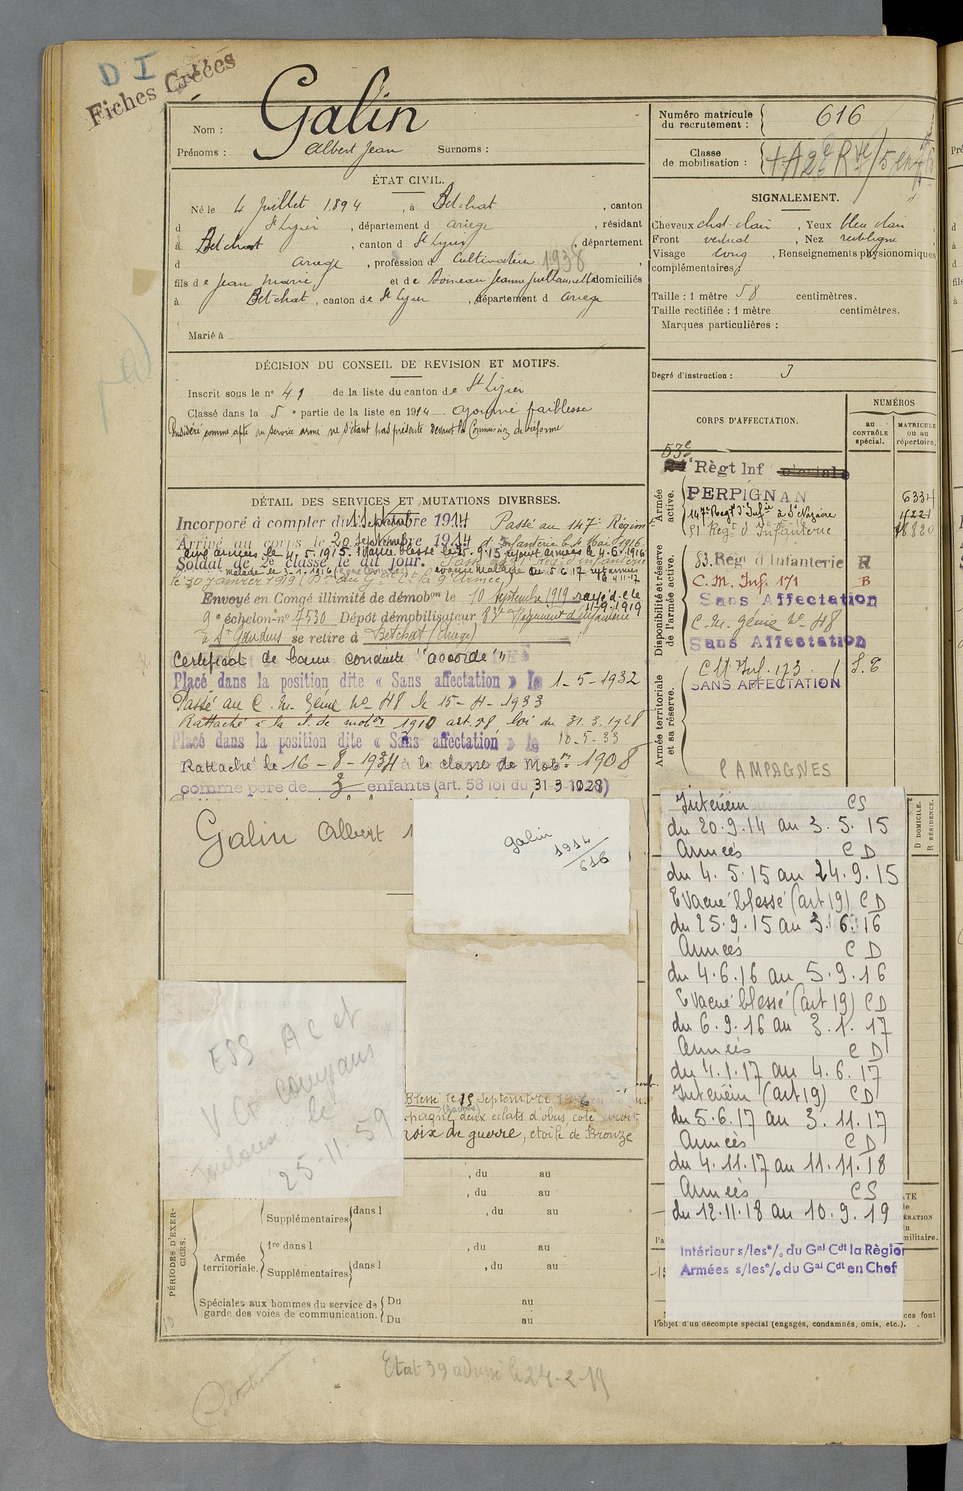 D I
Fiches Créées
Nom : Galin
Prénoms : Albert Jean Surnoms :
ÉTAT CIVIL.
Né le 4 Juillet 1894, à Betchat, canton
d St Lizier, département d Ariège, résidant
à Betchat, canton d St Lizier, département
d Ariège, profession d Cultivateur 1938
fils de Jean Marie et de Jeanne domiciliés
à Betchat, canton de St Lizier, département d Ariège
Marié à
DÉCISION DU CONSEIL DE REVISION ET MOTIFS.
Inscrit sous le n° 41 de la liste du canton de St Lizier
Classé dans la 5e partie de la liste en 1914 ajourné faiblesse
Considéré comme apte au service armé ne s'étant pas présenté devant la Commission de réforme
DÉTAIL DES SERVICES ET MUTATIONS DIVERSES.
Incorporé à compter du 1 Septembre 1914 Passé au 147e Régimt
Arrivé au corps le 20 Septembre 1914 d'Infanterie le 4 Mai 1916
aux armées le 4.5.1915. Evacué blessé le 25.9.15 rejoint armées le 4-6-1916
Soldat de 2e classe le dit jour.
le 30 janvier 1919
Envoyé en Congé illimité de démobon le 10 Septembre 1919
11-9-1919
9e échelon n° 7530 Dépôt démobilisateur 83e Régiment d'Infanterie
à St Gaudens se retire à Betchat (Ariège)
Certificat de bonne conduite "accordé"
Placé dans la position dite « Sans affectation » le 1-5-1932
Passé au C. M. Génie No 48 le 15-4-1933
Rattaché à la cl. de mobon 1910 art. 58 loi du 31.3.1928
Placé dans la position dite « Sans affectation » le 10-5-33
Rattaché le 16-8-1934 à la classe de Mobon 1908
comme père de 3 enfants (art. 58 loi du 31 3 1928)
Galin Albert
Galin
1914
616
ESS AC et
V Ct
Toulouse le
25-11-59
Blessé le 25 Septembre
deux éclats d'obus, côté
croix de guerre, étoile de Bronze
, du au
, du au
Supplémentaires dans l , du au
PÉRIODES D'EXERCICES.
Armée territoriale. 1re dans l , du au
Supplémentaires dans l , du au
Spéciales aux hommes du service de garde des voies de communication. Du au
Du au
Numéro matricule du recrutement : 616
Classe de mobilisation :
SIGNALEMENT.
Cheveux chat. clair, Yeux bleu clair
Front vertical, Nez rectiligne
Visage long, Renseignements physionomiques
complémentaires :
Taille : 1 mètre 58 centimètres.
Taille rectifiée : 1 mètre centimètres.
Marques particulières :
Degré d'instruction : 3
CORPS D'AFFECTATION.
NUMÉROS
au CONTRÔLE spécial.
MATRICULE ou au répertoire.
Armée active.
53e
Règt Inf
PERPIGNAN 6334
147e Régt d'Infie à St Nazaire
Régt d'Infanterie
Disponibilité et réserve de l'armée active.
83. Régt d'Infanterie R
C. M. Inf. 171 B
Sans Affectation
C. M. Génie No 48
Sans Affectation
Armée territoriale et sa réserve.
C M Inf. 173 S. E
SANS AFFECTATION
CAMPAGNES
D DOMICILE.
R RÉSIDENCE.
Intérieur CS
du 20.9.14 au 3.5.15
Armées CD
du 4.5.15 au 24.9.15
Evacué blessé (art 19) CD
du 25.9.15 au 3.6.16
Armées CD
du 4.6.16 au 5.9.16
Evacué blessé (art 19) CD
du 6.9.16 au 3.1.17
Armées CD
du 4.1.17 au 4.6.17
Intérieur (art 19) CD
du 5.6.17 au 3.11.17
Armées CD
du 4.11.17 au 11.11.18
Armées CS
du 12.11.18 au 10.9.19
Intérieur s/les °/. du Gal Cdt la Région
Armées s/les °/. du Gal Cdt en Chef
l'objet d'un décompte spécial (engagés, condamnés, omis, etc.).
Etat 39 adressé le 24-2-19